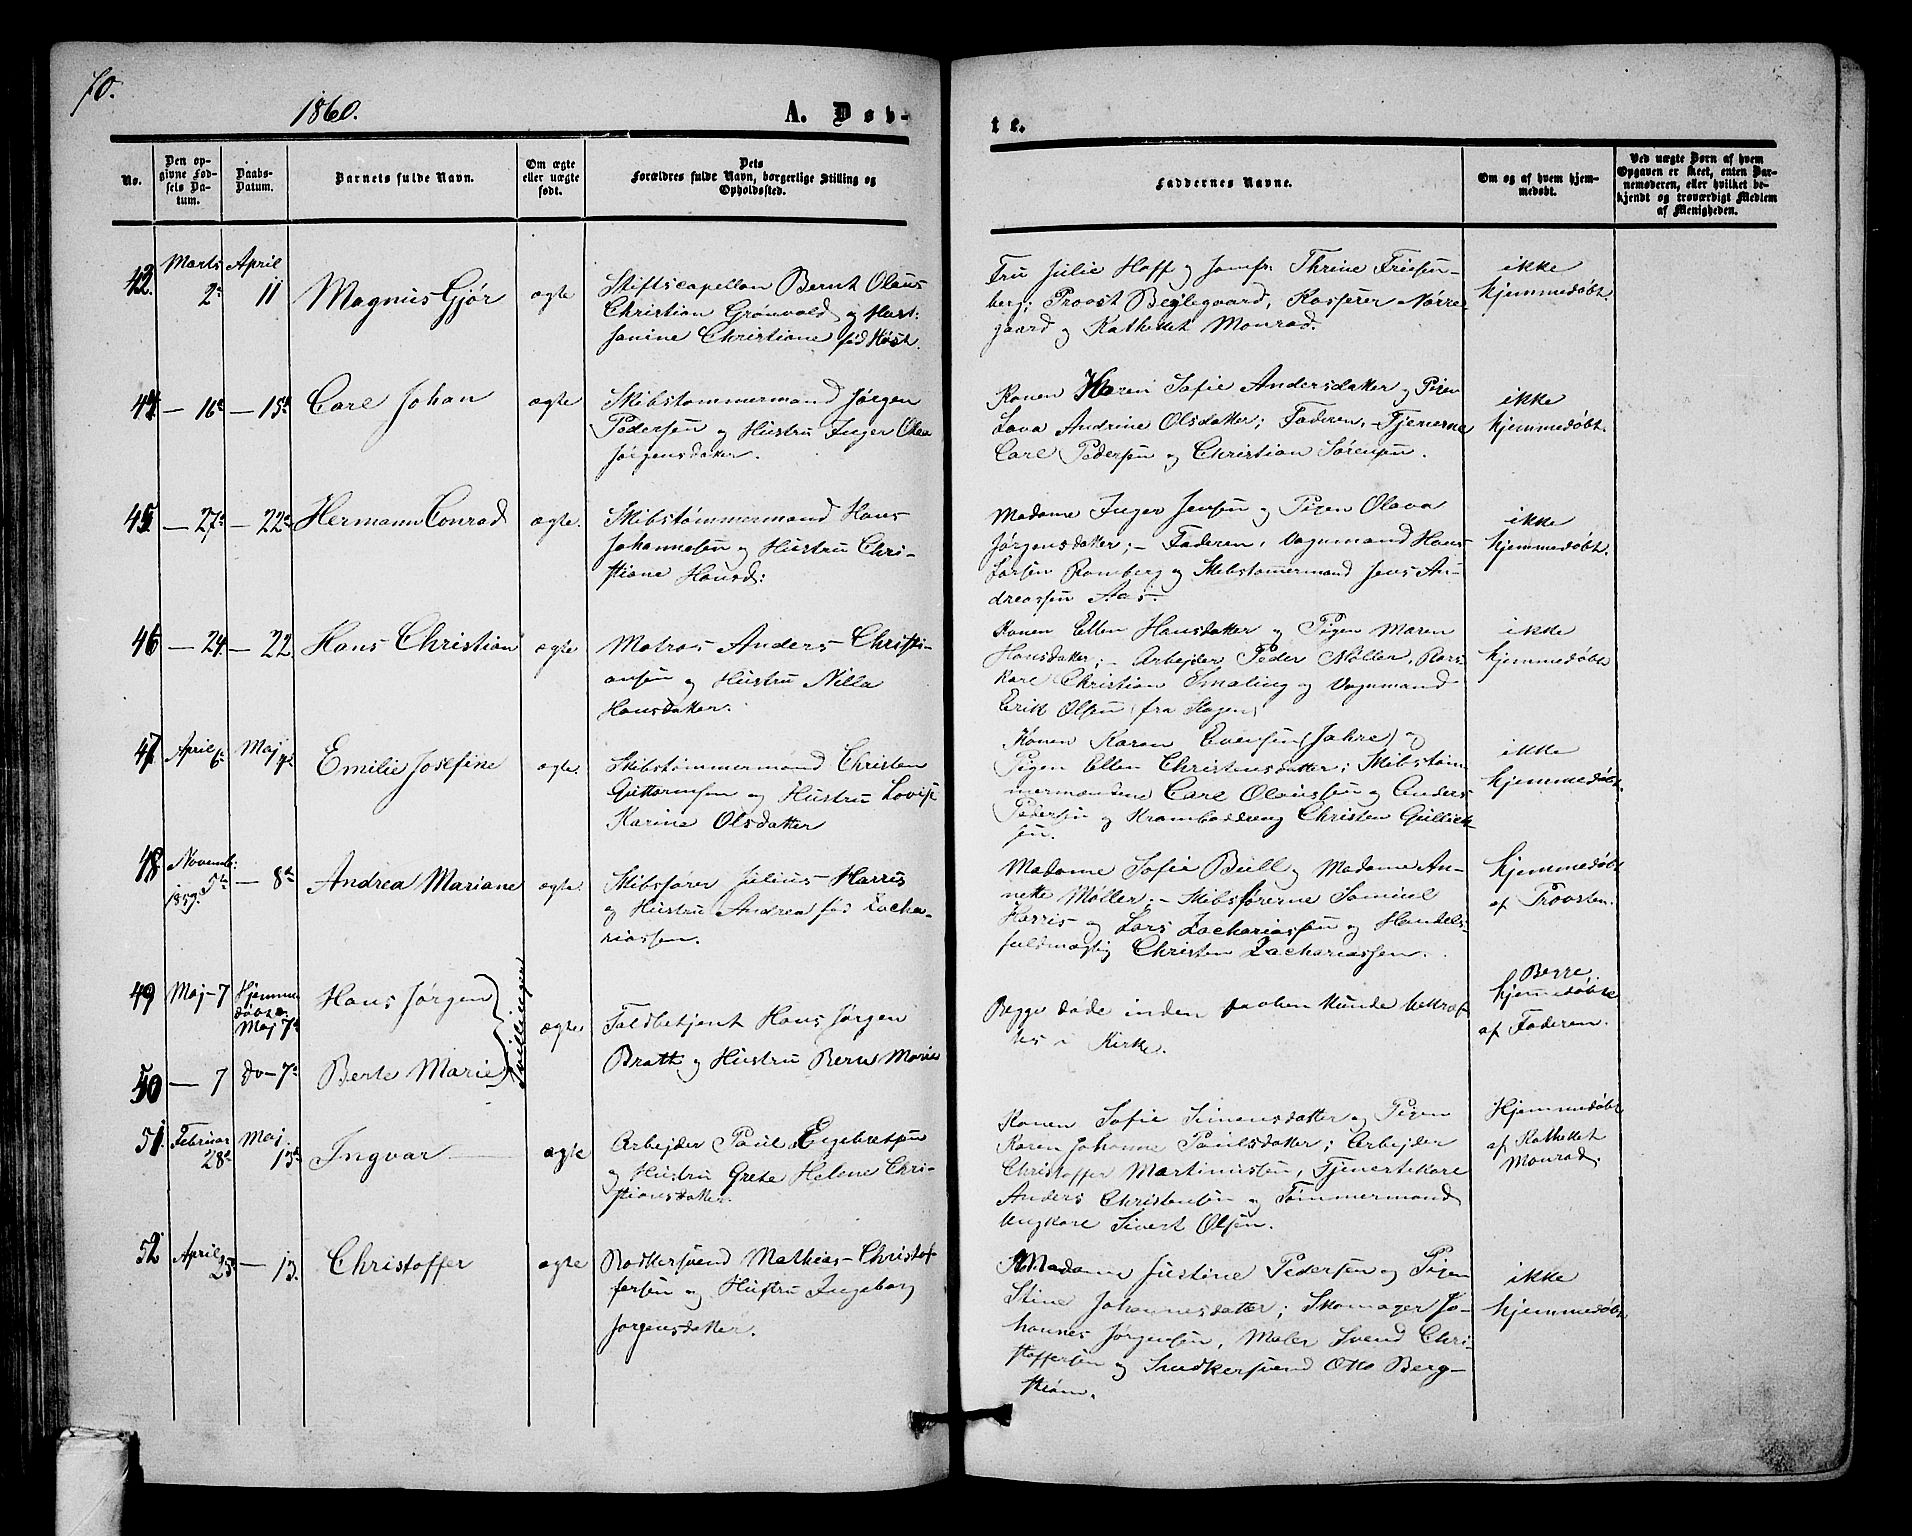 70.
1860.
A. Døb-
te.
No.
Den op-
givne Fød-
sels Da-
tum.
Daabs-
Datum.
Barnets fulde Navn.
Om ægte
eller uægte
født.
Dets
Forældres fulde Navn, borgerlige Stilling og
Opholdssted.
Faddernes Navne.
Om og af hvem hjem-
medøbt.
Ved uægte Børn af hvem
Opgaven er skeet, enten Bar-
nemoderen, eller hvilket be-
kjendt og troværdigt Medlem
af Menigheden.
43. Marts 2de April 11 Magnus Gjør ægte
Stiftscapellan Bernt Olaus
Christian Grønvold og Hust:
Janine Christiane fød Køst.
Fru Julie Hoff og Jomfr. Thrine Friisen-
berg; Provst Beylegaard, Kasserer Nørre-
gaard og Kathekt Monrad.
ikke
hjemmedøbt.
44 — 16de — 15de Carl Johan ægte
Skibstømmermand Jørgen
Pedersen og Hustru Inger Olea
Jørgensdatter.
Konen Karen Sofie Andersdatter og Pigen
Lava Andrine Olsdatter; Faderen, Tjenerne
Carl Pedersen og Christian Sørensen.
ikke
hjemmedøbt.
45 — 27de — 22de Hermann Conrad ægte.
Skibstømmermand Hans
Johannesen og Hustru Chri-
stiane Hansd:
Madame Inger Jensen og Pigen Olava
Jørgensdatter; — Faderen, Vognmand Hans
Larsen Romberg og Skibstømmermand Jens An-
dreassen Aas.
ikke
hjemmedøbt.
46 — 24. — 22 Hans Christian ægte
Matros Anders Christi-
ansen og Hustru Nilla
Hansdatter.
Konen Ellen Hansdatter og Pigen Maren
Hansdatter; — Arbejder Peder Møller, Kars-
kare Christian Smaling og Vognmand
Erik Olsen (fra Hagen)
ikke
hjemmedøbt
47 April 6te Maj Emilie Josefine ægte.
Skibstømmermand Christen
Guttormsen og Hustru Lovise
Karine Olsdatter
Konen Karen Evensen (Jahre) og
Pigen Ellen Christensdatter; Skibstøm-
mermændene Carl Olaussen og Anders
Pedersen og Kramboddreng Christen Gullick-
sen.
ikke
hjemmedøbt.
48 Novemb: 5te 1859. — 8de Andrea Mariane ægte.
Skibsfører Julius Harris
og Hustru Andrea fød Zacha-
riassen.
Madame Sofie Bull og Madame An-
nette Møller; — Skibsførerne Samuel
Harris og Lars Zachariassen og Handels-
fuldmægtig Christen Zachariassen.
hjemmedøbt
af Provsten.
49 Maj 7 Hjemme-
døbte
Maj 7de
Hans Jørgen
Tvillinger
ægte
Toldbetjent Hans Jørgen
Bratt og Hustru Berte Marie
Begge døde inden Daaben kunde bekræf-
tes i Kirke.
Begge
hjemmedøbte
af Faderen.
50 — 7 do 7de Berte Marie
51. Februar 28de Maj 13de Ingvar ægte
Arbejder Paul Engebretsen
og Hustru Grete Helene Chri-
stiansdatter.
Konen Sofie Simensdatter og Pigen
Karen Johanne Paulsdatter; Arbejder
Christoffer Martinussen, Tjenestekarl
Anders Christensen og Tømmermand
Ungkarl Sivert Olsen.
Hjemmedøbt
af Kathekt
Monrad.
52 April 25 — 13. Christoffer ægte
Bødkersvend Mathias Christof-
fersen og Hustru Ingeborg
Jørgensdatter.
Madame Justine Pedersen og Pigen
Stine Johannesdatter; Skomager Jo-
hannes Jørgensen, Maler Svend Chri-
stoffersen og Snedkersvend Otto Berg-
strøm.
ikke
hjemmedøbt